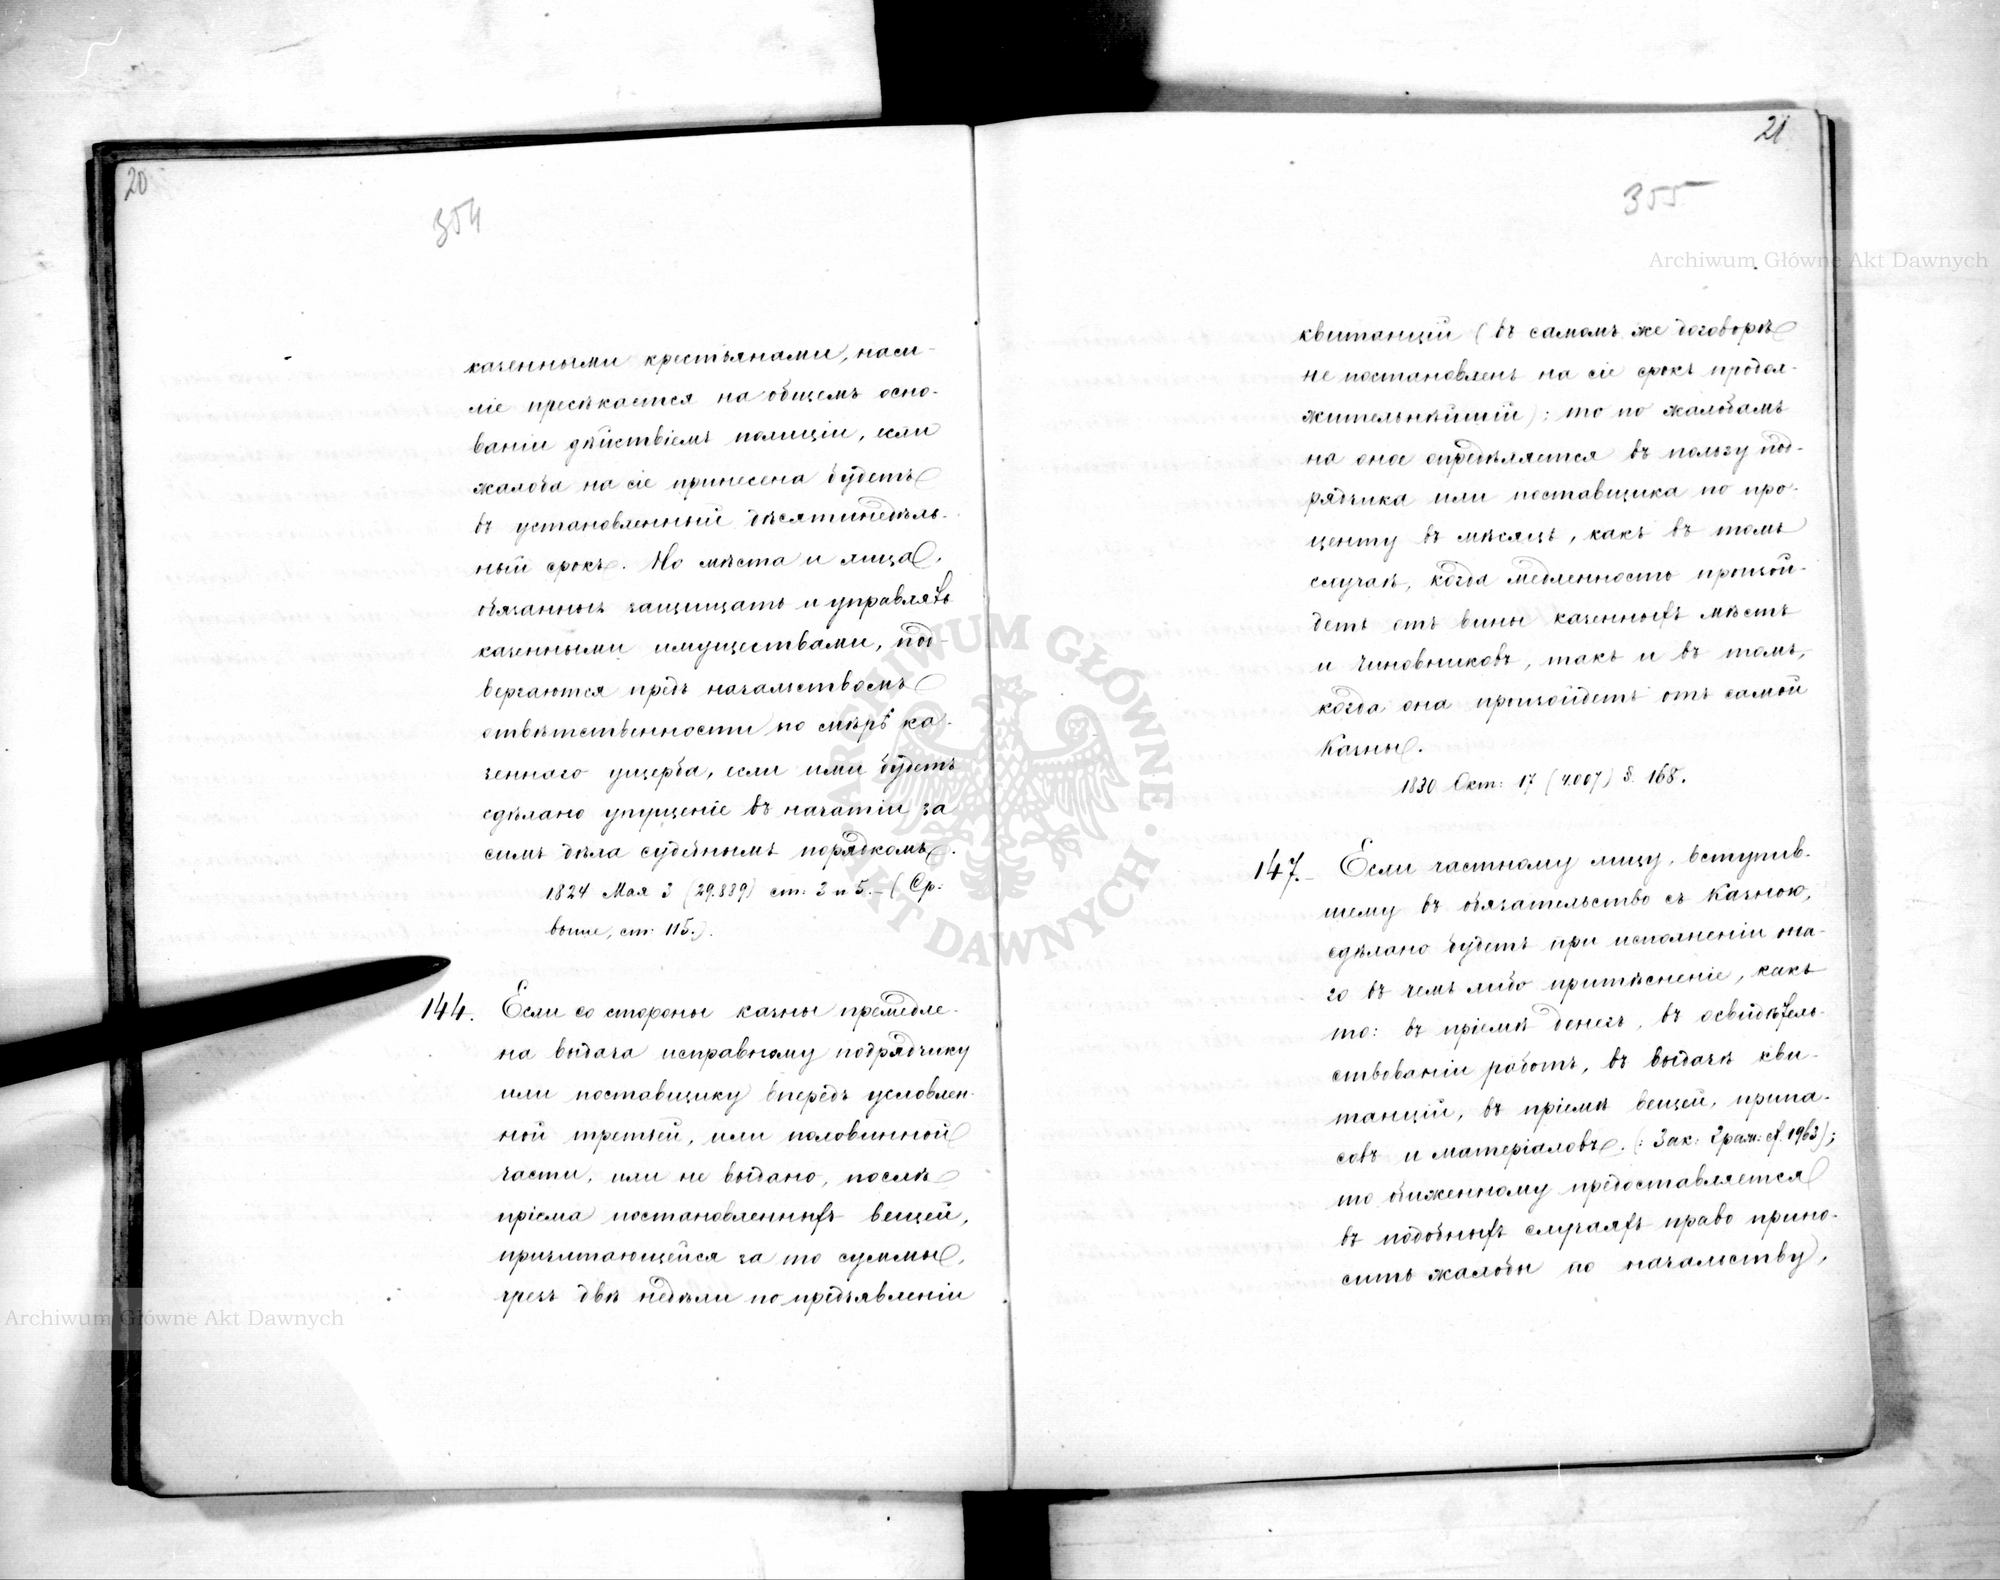 20
354
казенными крестьянами, наси-
ліе пресѣкается на общемъ осно-
ваніи дѣйствіемъ полиціи, если
жалоба на сіе принесена будетъ
въ установленный десятинедѣль-
ный срокъ. Но мѣста и лица,
обязанныя защищать и управлять
казенными имуществами, под-
вергаются предъ начальствомъ
отвѣтственности по мѣрѣ ка-
зеннаго ущерба, если ими будетъ
сдѣлано упущеніе въ начатіи за
симъ дѣла судебнымъ порядкомъ.
1824 Мая 3 (29.889) ст: 3 и 5. – (Ср:
выше, ст. 115.).
144. Если со стороны казны промедле-
на выдача исправному подрядчику
или поставщику впередъ условлен-
ной третьей, или половинной
части, или не выдано, послѣ
пріема постановленныхъ вещей,
причитающейся за то суммы,
чрезъ двѣ недѣли по предъявленіи
21
355
квитанціи (въ самомъ же договорѣ
не постановленъ на сіе срокъ продол-
жительнѣйшій): то по жалобамъ
на оное опредѣляется въ пользу под-
рядчика или поставщика по про-
центу въ мѣсяцъ, какъ въ томъ
случаѣ, когда медленность произой-
детъ отъ вины казенныхъ мѣстъ
и чиновниковъ, такъ и въ томъ,
когда она произойдетъ отъ самой
Казны.
1830 Окт: 17 (4.007) §. 168.
147. Если частному лицу, вступив-
шему въ обязательство съ Казною,
сдѣлано будетъ при исполненіи она-
го въ чемъ либо притѣсненіе, какъ
то: въ пріемѣ денегъ, въ освидѣтель-
ствованіи работъ, въ выдачѣ кви-
танцій, въ пріемѣ вещей, припа-
совъ и матеріаловъ. (: Зак: Граж: ст. 1963);
то обиженному предоставляется
въ подобныхъ случаяхъ право прино-
сить жалобы по начальству,
Archiwum Główne Akt Dawnych
Archiwum Główne Akt Dawnych
ARCHIWUM GŁÓWNE · AKT DAWNYCH ·